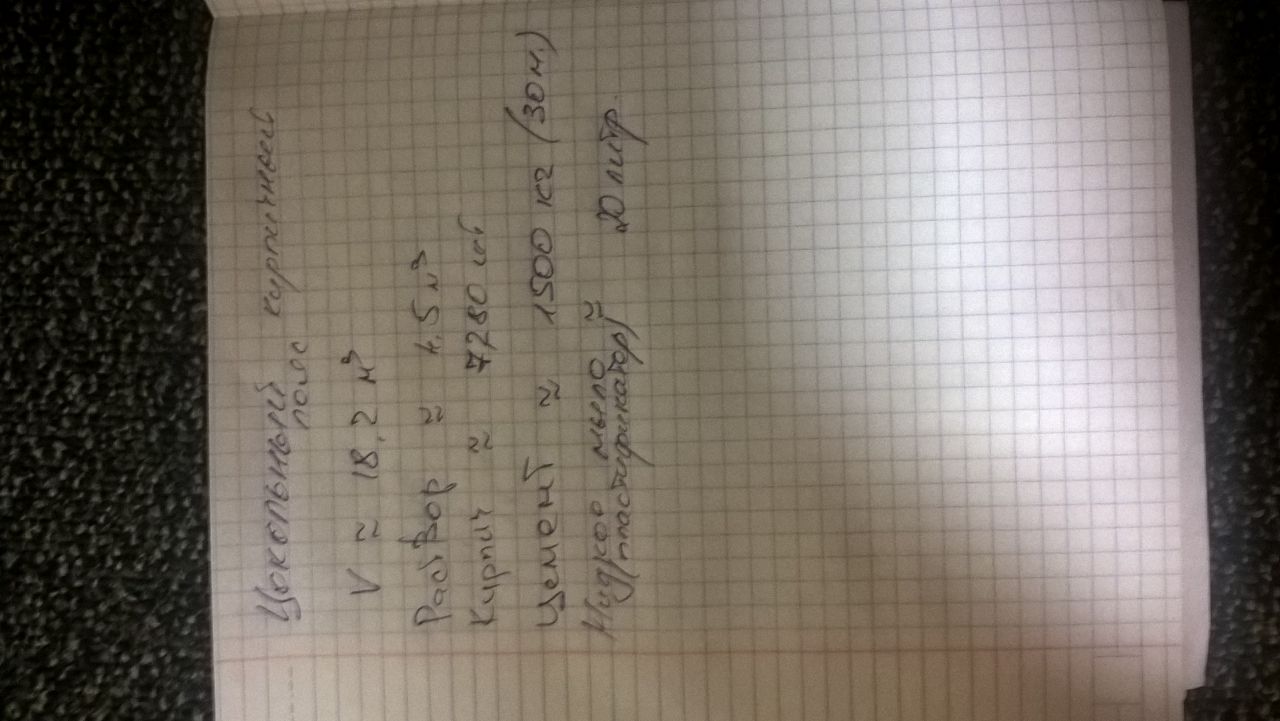 Цокольный пояс кирпичный
V ≈ 18,2 м³
Раствор ≈ 4,5 м³
Кирпич ≈ 7280 шт
Цемент ≈ 1500 кг (30 м.)
Жидкое мыло ≈ 20 литр.
пластификатор)